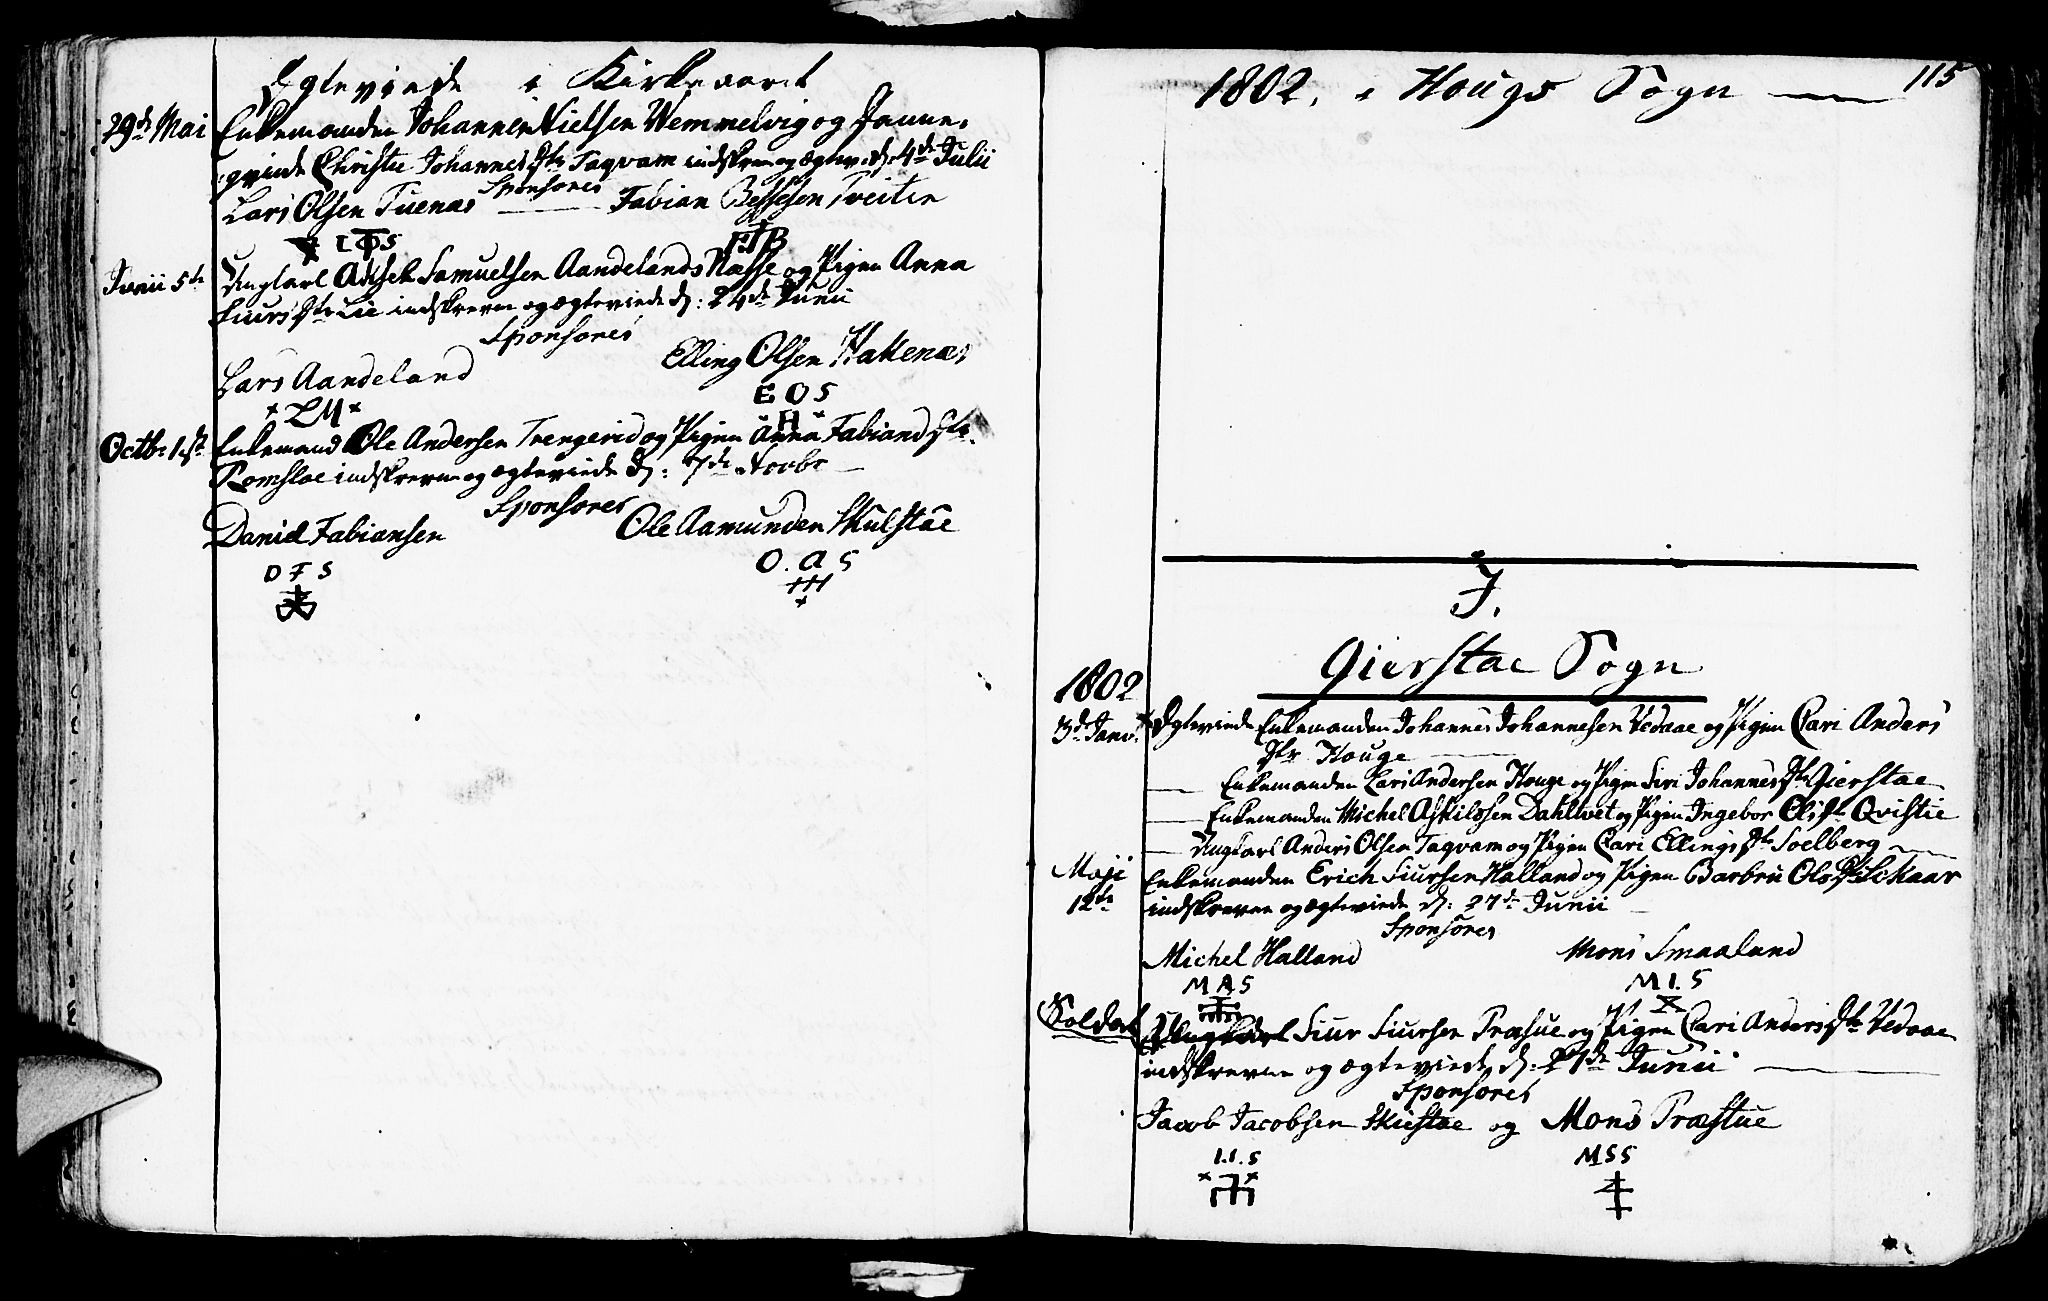 Egteviede i Kirke aaret
29de Mai Enkemanden Johannes Nielsen Hemmelvig og Danne-
qvinde Christie Johannes Dtr Taqvam indskrevne og Ægtev: d: 4de Julii
Sponsores
Lars Olsen Tuenæs — Fabian Bessesen Tveiten
LOS FBB
Junii 5te Ungkarl Aksel Samuelsen Aandelands Næsse og Pigen Anna
Siurs Dtr Lie indskrevne og ægteviede d: 24de Junii
Sponsores
Lars Aandeland Elling Olsen Hakenæs
LM E O S
H
Octbr 1ste Enkemand Ole Andersen Trengerid og Pigen Anna Fabians Dtr
Romsloe indskrevne og ægteviede d: 7de Novbr —
Sponsores
Daniel Fabiansen Ole Aamunden Skulstae
D F S O. A S
115
1802. i Hougs Sogn —
I.
Gierstae Sogn
1802
3de Janv: Egteviede Enkemanden Johannes Johannesen Vedaae og Pigen Cari Anders
Dtr Houge
— Enkemanden Lars Andersen Houge og Pigen Siri Johannes Dtr Gierstae
— Enkemanden Michel Askilssen Dahltvet og Pigen Ingebor Ols Dtr Qvistie
— Ungkarl Anders Olsen Taqvam og Pigen Cari Ellings Dtr Soelberg —
Maji Enkemanden Erich Siursen Halland og Pigen Barbru Ols Dtr Schaar
12te indskrevne og ægteviede d: 27de Junii
Sponsores
Michel Halland Mons Smaaland
M A S M I. S
Soldat Ungkarl Siur Siursen Præstue og Pigen Cari Anders Dtr Vedaae
indskrevne og ægteviede d: 27de Junii —
Sponsores
Jacob Jacobsen Skiestae og Mons Præstue
I. I. S M S S